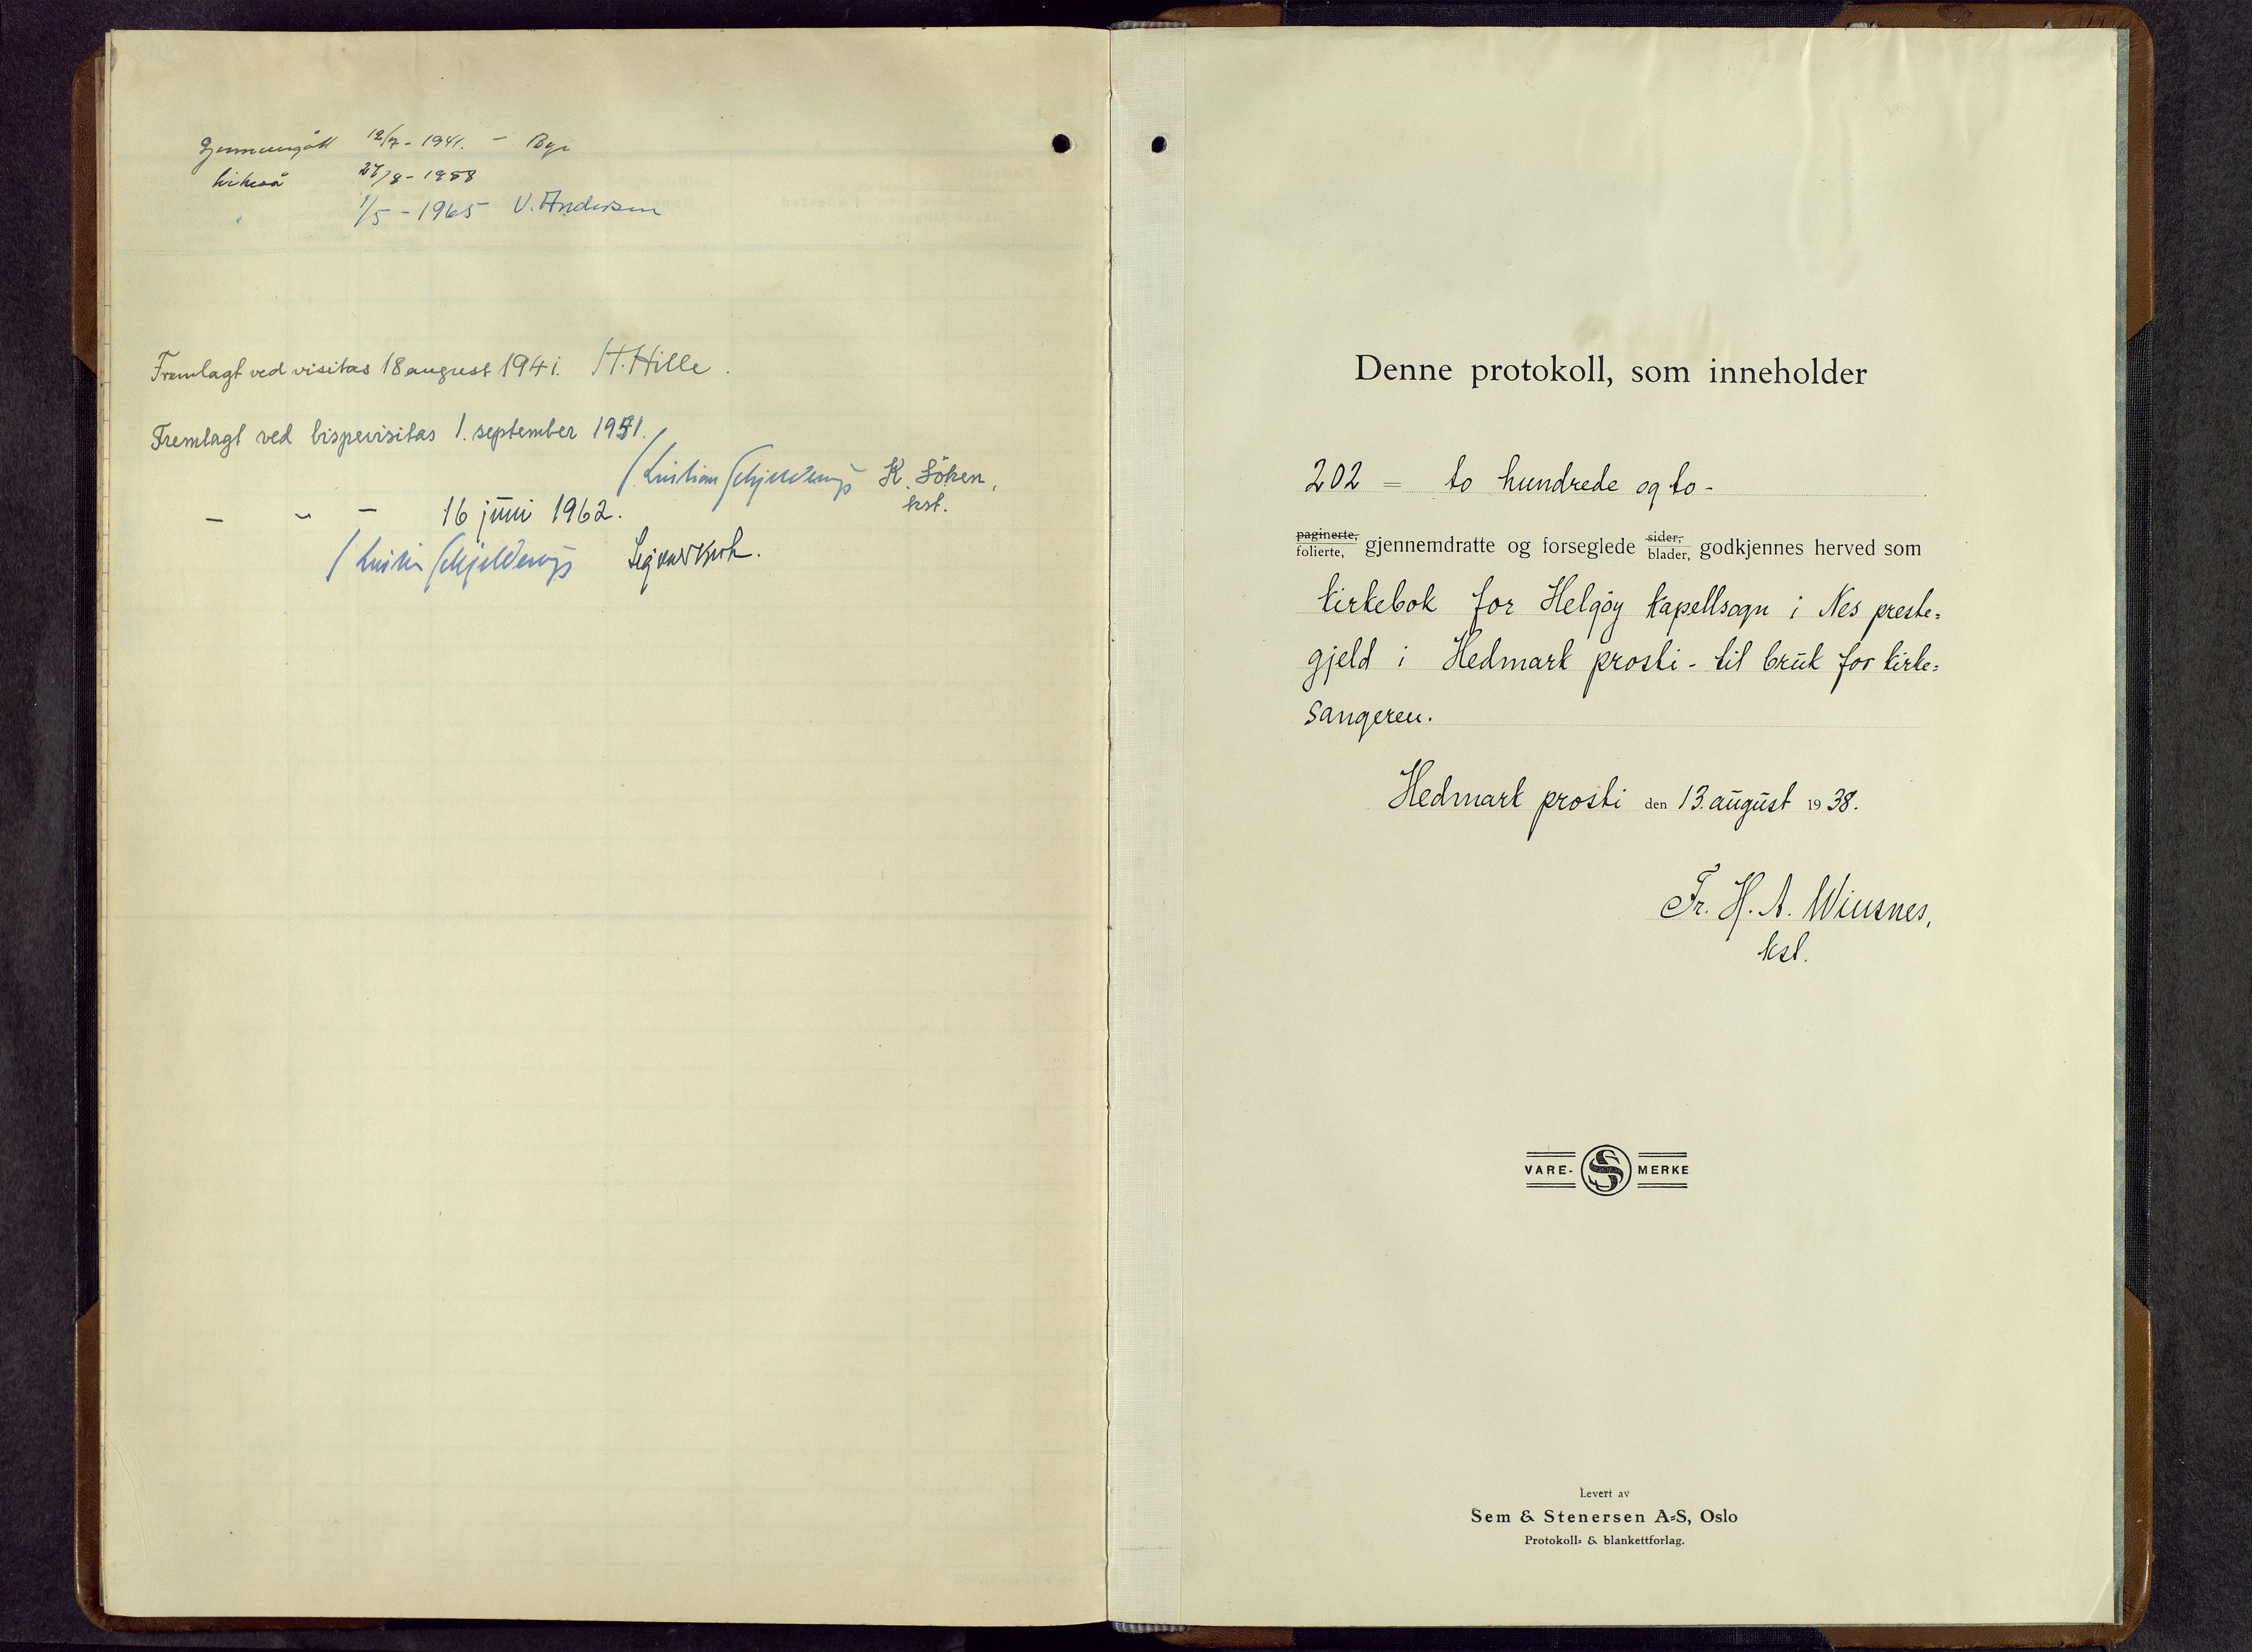 Gjennemgått 12/7 - 1941. -
likeså 27/8 - 1958
" 1/5 - 1965 V. Andersen
Fremlagt ved visitas 18 august 1941. H. Hille.
Fremlagt ved bispevisitas 1. september 1951.
Kristian Schjelderup K. Söken,
kst.
- " - 16 juni 1962.
Kristian Schjelderup
Denne protokoll, som inneholder
202 = to hundrede og to -
paginerte, folierte, gjennemdratte og forseglede sider, blader, godkjennes herved som
kirkebok for Helgøy kapellsogn i Nes preste=
gjeld i Hedmark prosti - til bruk for kirke=
sangeren.
Hedmark prosti den 13. august 1938.
Fr. H. A. Wiusnes,
kst.
VARE- S MERKE
Levert av
Sem & Stenersen A=S, Oslo
Protokoll= & blankettforlag.